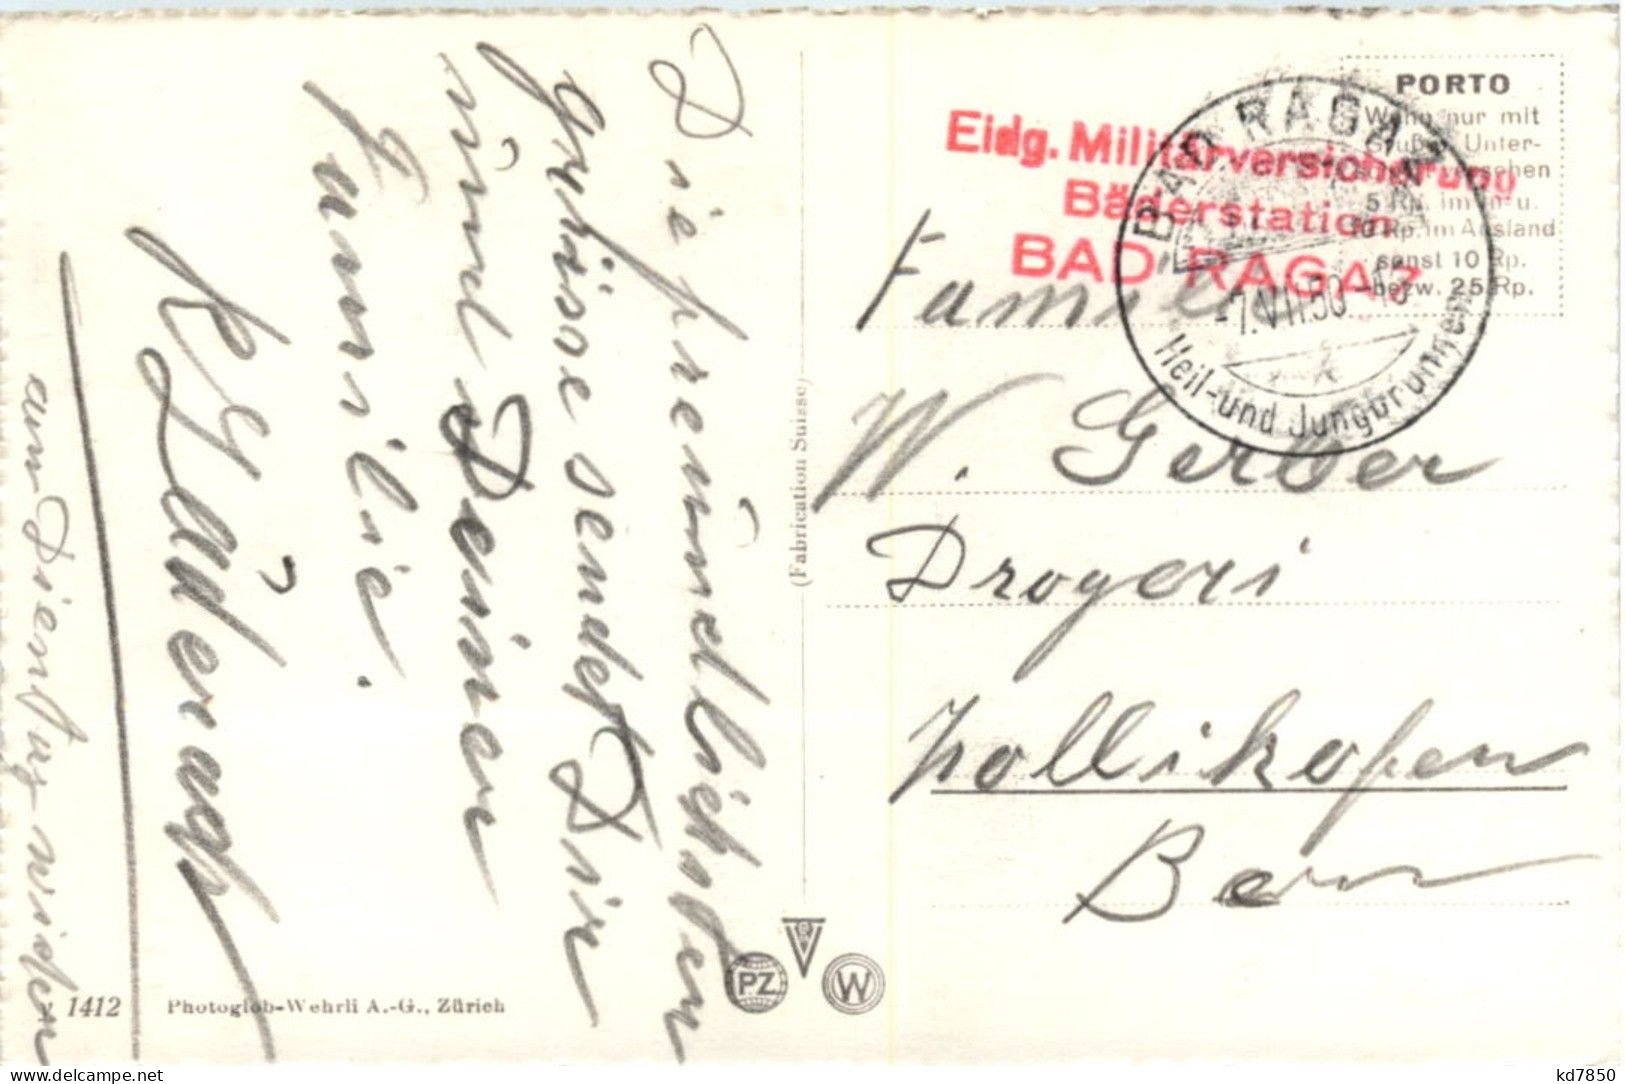 Die freündlichsten
Grüsse sendet Dir
ünd Deiner
Familie.
am Dienstag wider
1412
Photoglob-Wehrli A.-G., Zürich
(Fabrication Suisse)
PZ
W
Eidg. Militärversicherung
Bäderstation
BAD RAGAZ
BAD RAGAZ
-7.VII.50
Heil- und Jungbrunnen
PORTO
Wenn nur mit
Gruß u. Unter-
5 Rp. im In- u.
10 Rp. im Ausland
sonst 10 Rp.
bezw. 25 Rp.
Familie
W. Gerber
Drogeri
Zollikofen
Bern
kd7850